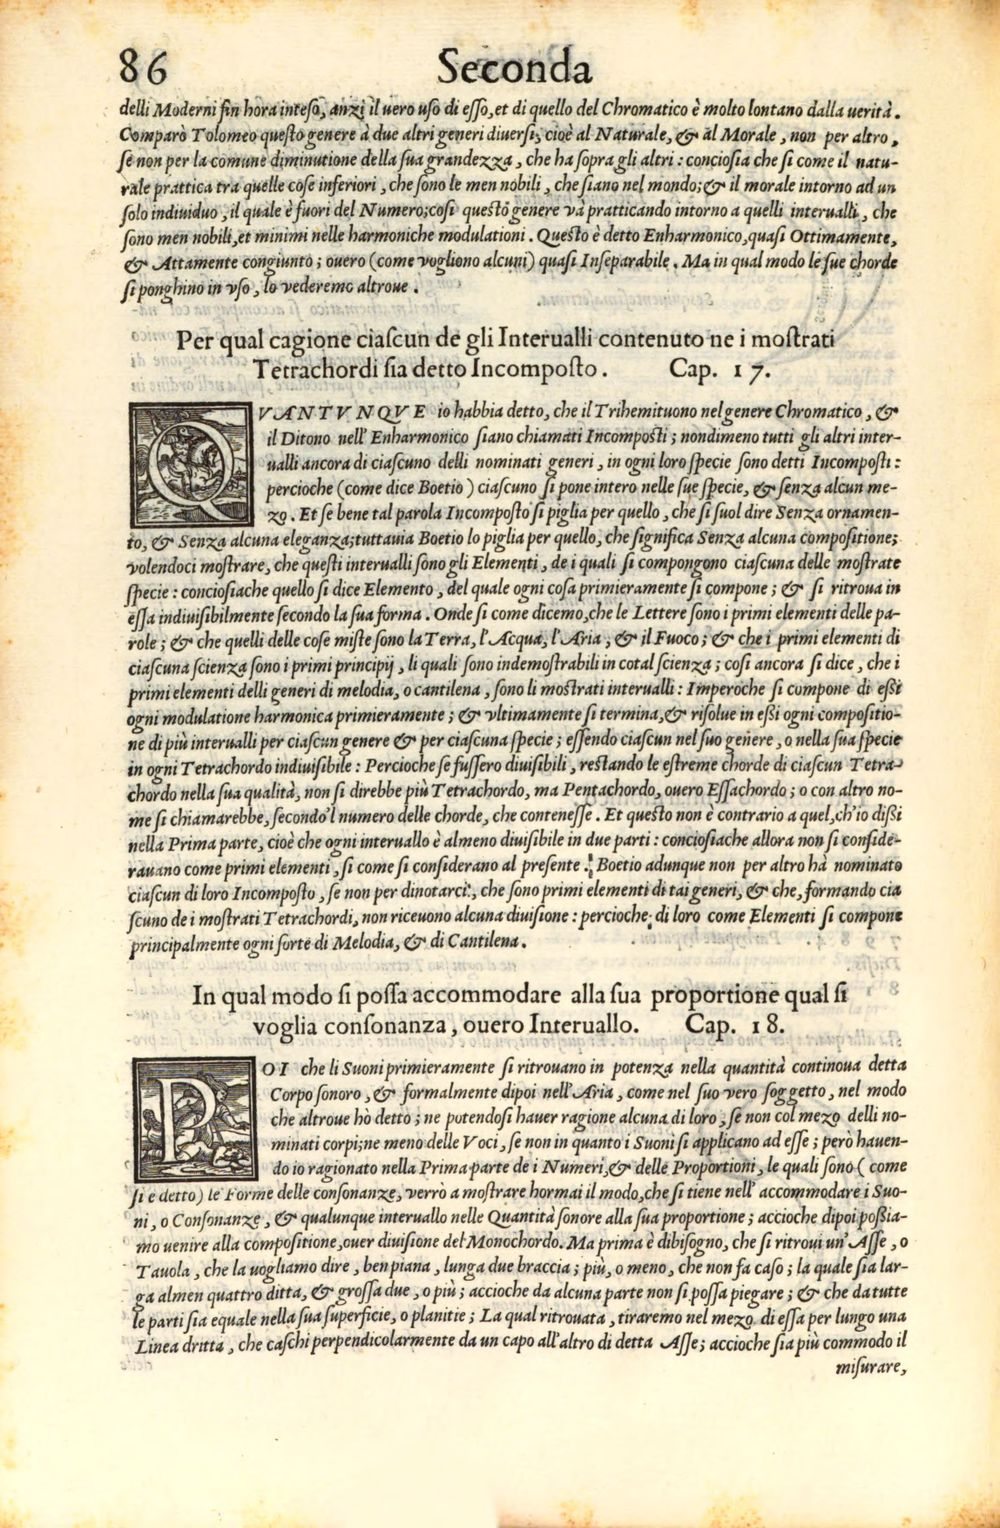 86 Seconda
delli Moderni ſin hora inteſo, anzi il uero uſo di eſſo, et di quello del Chromatico è molto lontano dalla uerità.
Comparò Tolomeo queſto genere à due altri generi diuerſi, cioè al Naturale, & al Morale, non per altro,
ſe non per la comune diminutione della ſua grandezza, che ha ſopra gli altri: concioſia che ſi come il natu-
rale prattica tra quelle coſe inferiori, che ſono le men nobili, che ſiano nel mondo; & il morale intorno ad un
ſolo indiuiduo, il quale è fuori del Numero; coſi queſto genere và pratticando intorno a quelli interualli, che
ſono men nobili, et minimi nelle harmoniche modulationi. Queſto è detto Enharmonico, quaſi Ottimamente,
& Attamente congiunto; ouero (come vogliono alcuni) quaſi Inſeparabile. Ma in qual modo le ſue chorde
ſi ponghino in vſo, lo vederemo altroue.
Per qual cagione ciaſcun de gli Interualli contenuto ne i moſtrati
Tetrachordi ſia detto Incompoſto. Cap. 17.
QVANTVNQVE io habbia detto, che il Trihemituono nel genere Chromatico, &
il Ditono nell'Enharmonico ſiano chiamati Incompoſti; nondimeno tutti gli altri inter-
ualli ancora di ciaſcuno delli nominati generi, in ogni loro ſpecie ſono detti Incompoſti:
percioche (come dice Boetio) ciaſcuno ſi pone intero nelle ſue ſpecie, & ſenza alcun me-
zo. Et ſe bene tal parola Incompoſto ſi piglia per quello, che ſi ſuol dire Senza ornamen-
to, & Senza alcuna eleganza; tuttauia Boetio lo piglia per quello, che ſignifica Senza alcuna compoſitione;
volendoci moſtrare, che queſti interualli ſono gli Elementi, de i quali ſi compongono ciaſcuna delle moſtrate
ſpecie: concioſiache quello ſi dice Elemento, del quale ogni coſa primieramente ſi compone; & ſi ritroua in
eſſa indiuiſibilmente ſecondo la ſua forma. Onde ſi come dicemo, che le Lettere ſono i primi elementi delle pa-
role; & che quelli delle coſe miſte ſono la Terra, l'Acqua, l'Aria, & il Fuoco; & che i primi elementi di
ciaſcuna ſcienza ſono i primi principij, li quali ſono indemoſtrabili in cotal ſcienza; coſi ancora ſi dice, che i
primi elementi delli generi di melodia, o cantilena, ſono li moſtrati interualli: Imperoche ſi compone di eſſi
ogni modulatione harmonica primieramente; & vltimamente ſi termina, & riſolue in eſſi ogni compoſitio-
ne di più interualli per ciaſcun genere & per ciaſcuna ſpecie; eſſendo ciaſcun nel ſuo genere, o nella ſua ſpecie
in ogni Tetrachordo indiuiſibile: Percioche ſe fuſſero diuiſibili, reſtando le eſtreme chorde di ciaſcun Tetra-
chordo nella ſua qualità, non ſi direbbe più Tetrachordo, ma Pentachordo, ouero Eſſachordo; o con altro no-
me ſi chiamarebbe, ſecondo'l numero delle chorde, che conteneſſe. Et queſto non è contrario a quel, ch'io diſſi
nella Prima parte, cioè che ogni interuallo è almeno diuiſibile in due parti: concioſiache allora non ſi conſide-
rauano come primi elementi, ſi come ſi conſiderano al preſente. Boetio adunque non per altro hà nominato
ciaſcun di loro Incompoſto, ſe non per dinotarci, che ſono primi elementi di tai generi, & che, formando cia
ſcuno de i moſtrati Tetrachordi, non riceuono alcuna diuiſione: percioche di loro come Elementi ſi compone
principalmente ogni ſorte di Melodia, & di Cantilena.
In qual modo ſi poſſa accommodare alla ſua proportione qual ſi
voglia conſonanza, ouero Interuallo. Cap. 18.
POI che li Suoni primieramente ſi ritrouano in potenza nella quantità continoua detta
Corpo ſonoro, & formalmente dipoi nell'Aria, come nel ſuo vero ſoggetto, nel modo
che altroue hò detto; ne potendoſi hauer ragione alcuna di loro, ſe non col mezo delli no-
minati corpi; ne meno delle Voci, ſe non in quanto i Suoni ſi applicano ad eſſe; però hauen-
do io ragionato nella Prima parte de i Numeri, & delle Proportioni, le quali ſono (come
ſi è detto) le Forme delle conſonanze, verrò a moſtrare hormai il modo, che ſi tiene nell'accommodare i Suo-
ni, o Conſonanze, & qualunque interuallo nelle Quantità ſonore alla ſua proportione; accioche dipoi poſſia-
mo venire alla compoſitione, ouer diuiſione del Monochordo. Ma prima è dibiſogno, che ſi ritroui un'Aſſe, o
Tauola, che la uogliamo dire, ben piana, lunga due braccia; più, o meno, che non fa caſo; la quale ſia lar-
ga almen quattro ditta, & groſſa due, o più; accioche da alcuna parte non ſi poſſa piegare; & che da tutte
le parti ſia equale nella ſua ſuperficie, o planitie; La qual ritrouata, tiraremo nel mezo di eſſa per lungo una
Linea dritta, che caſchi perpendicolarmente da un capo all'altro di detta Aſſe; accioche ſia più commodo il
miſurare,